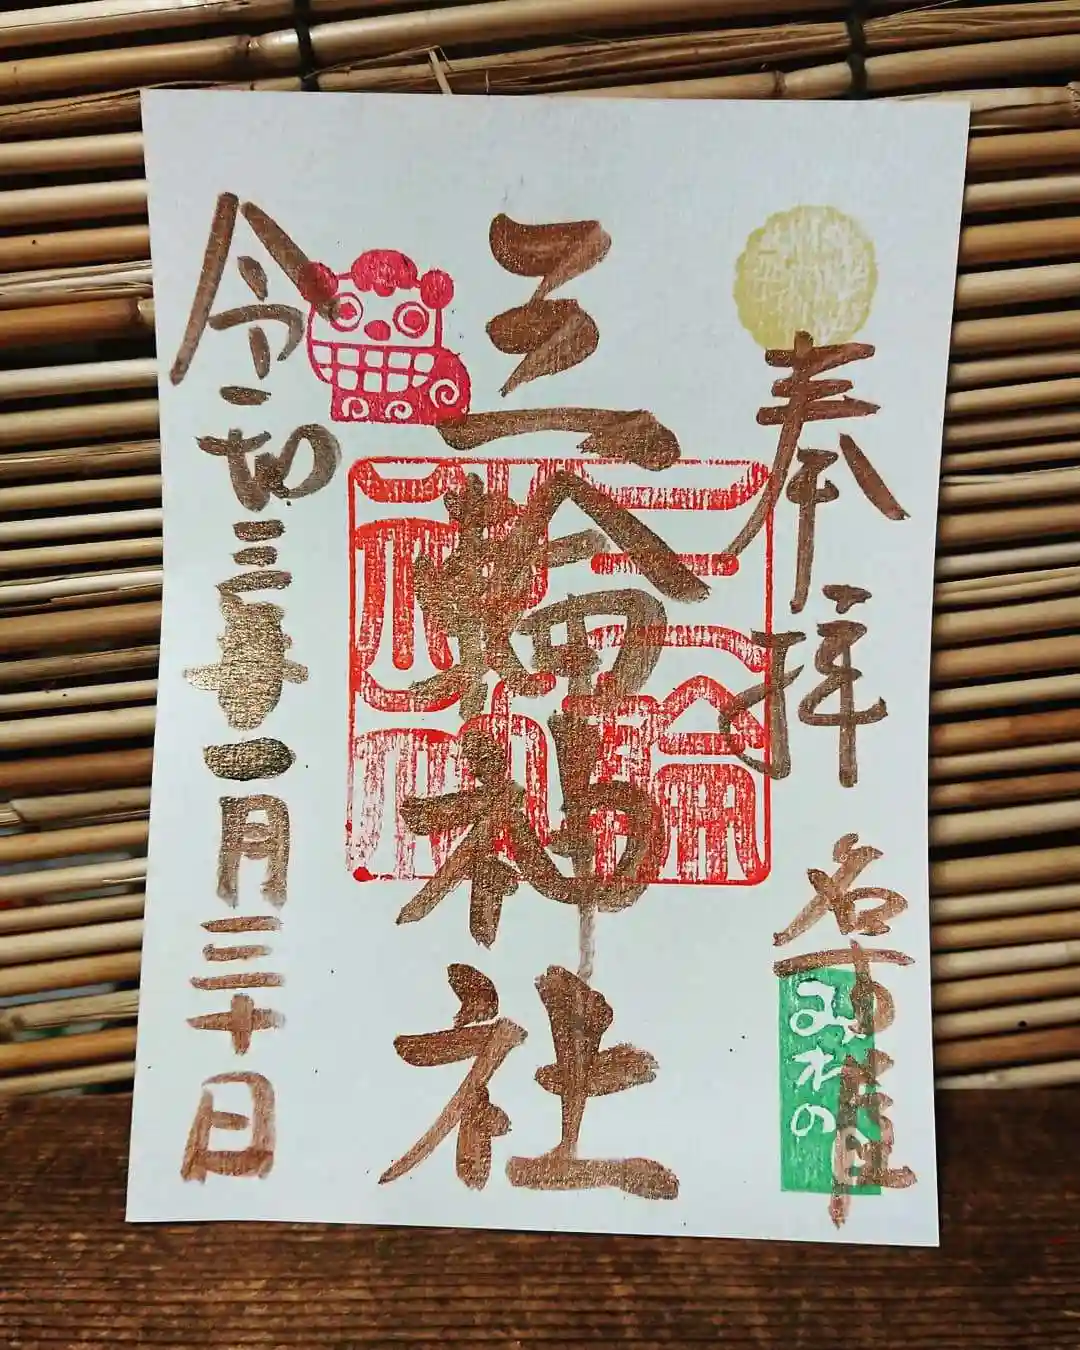 奉拝
みわの
三輪神社
三輪神社
令和三年一月三十日